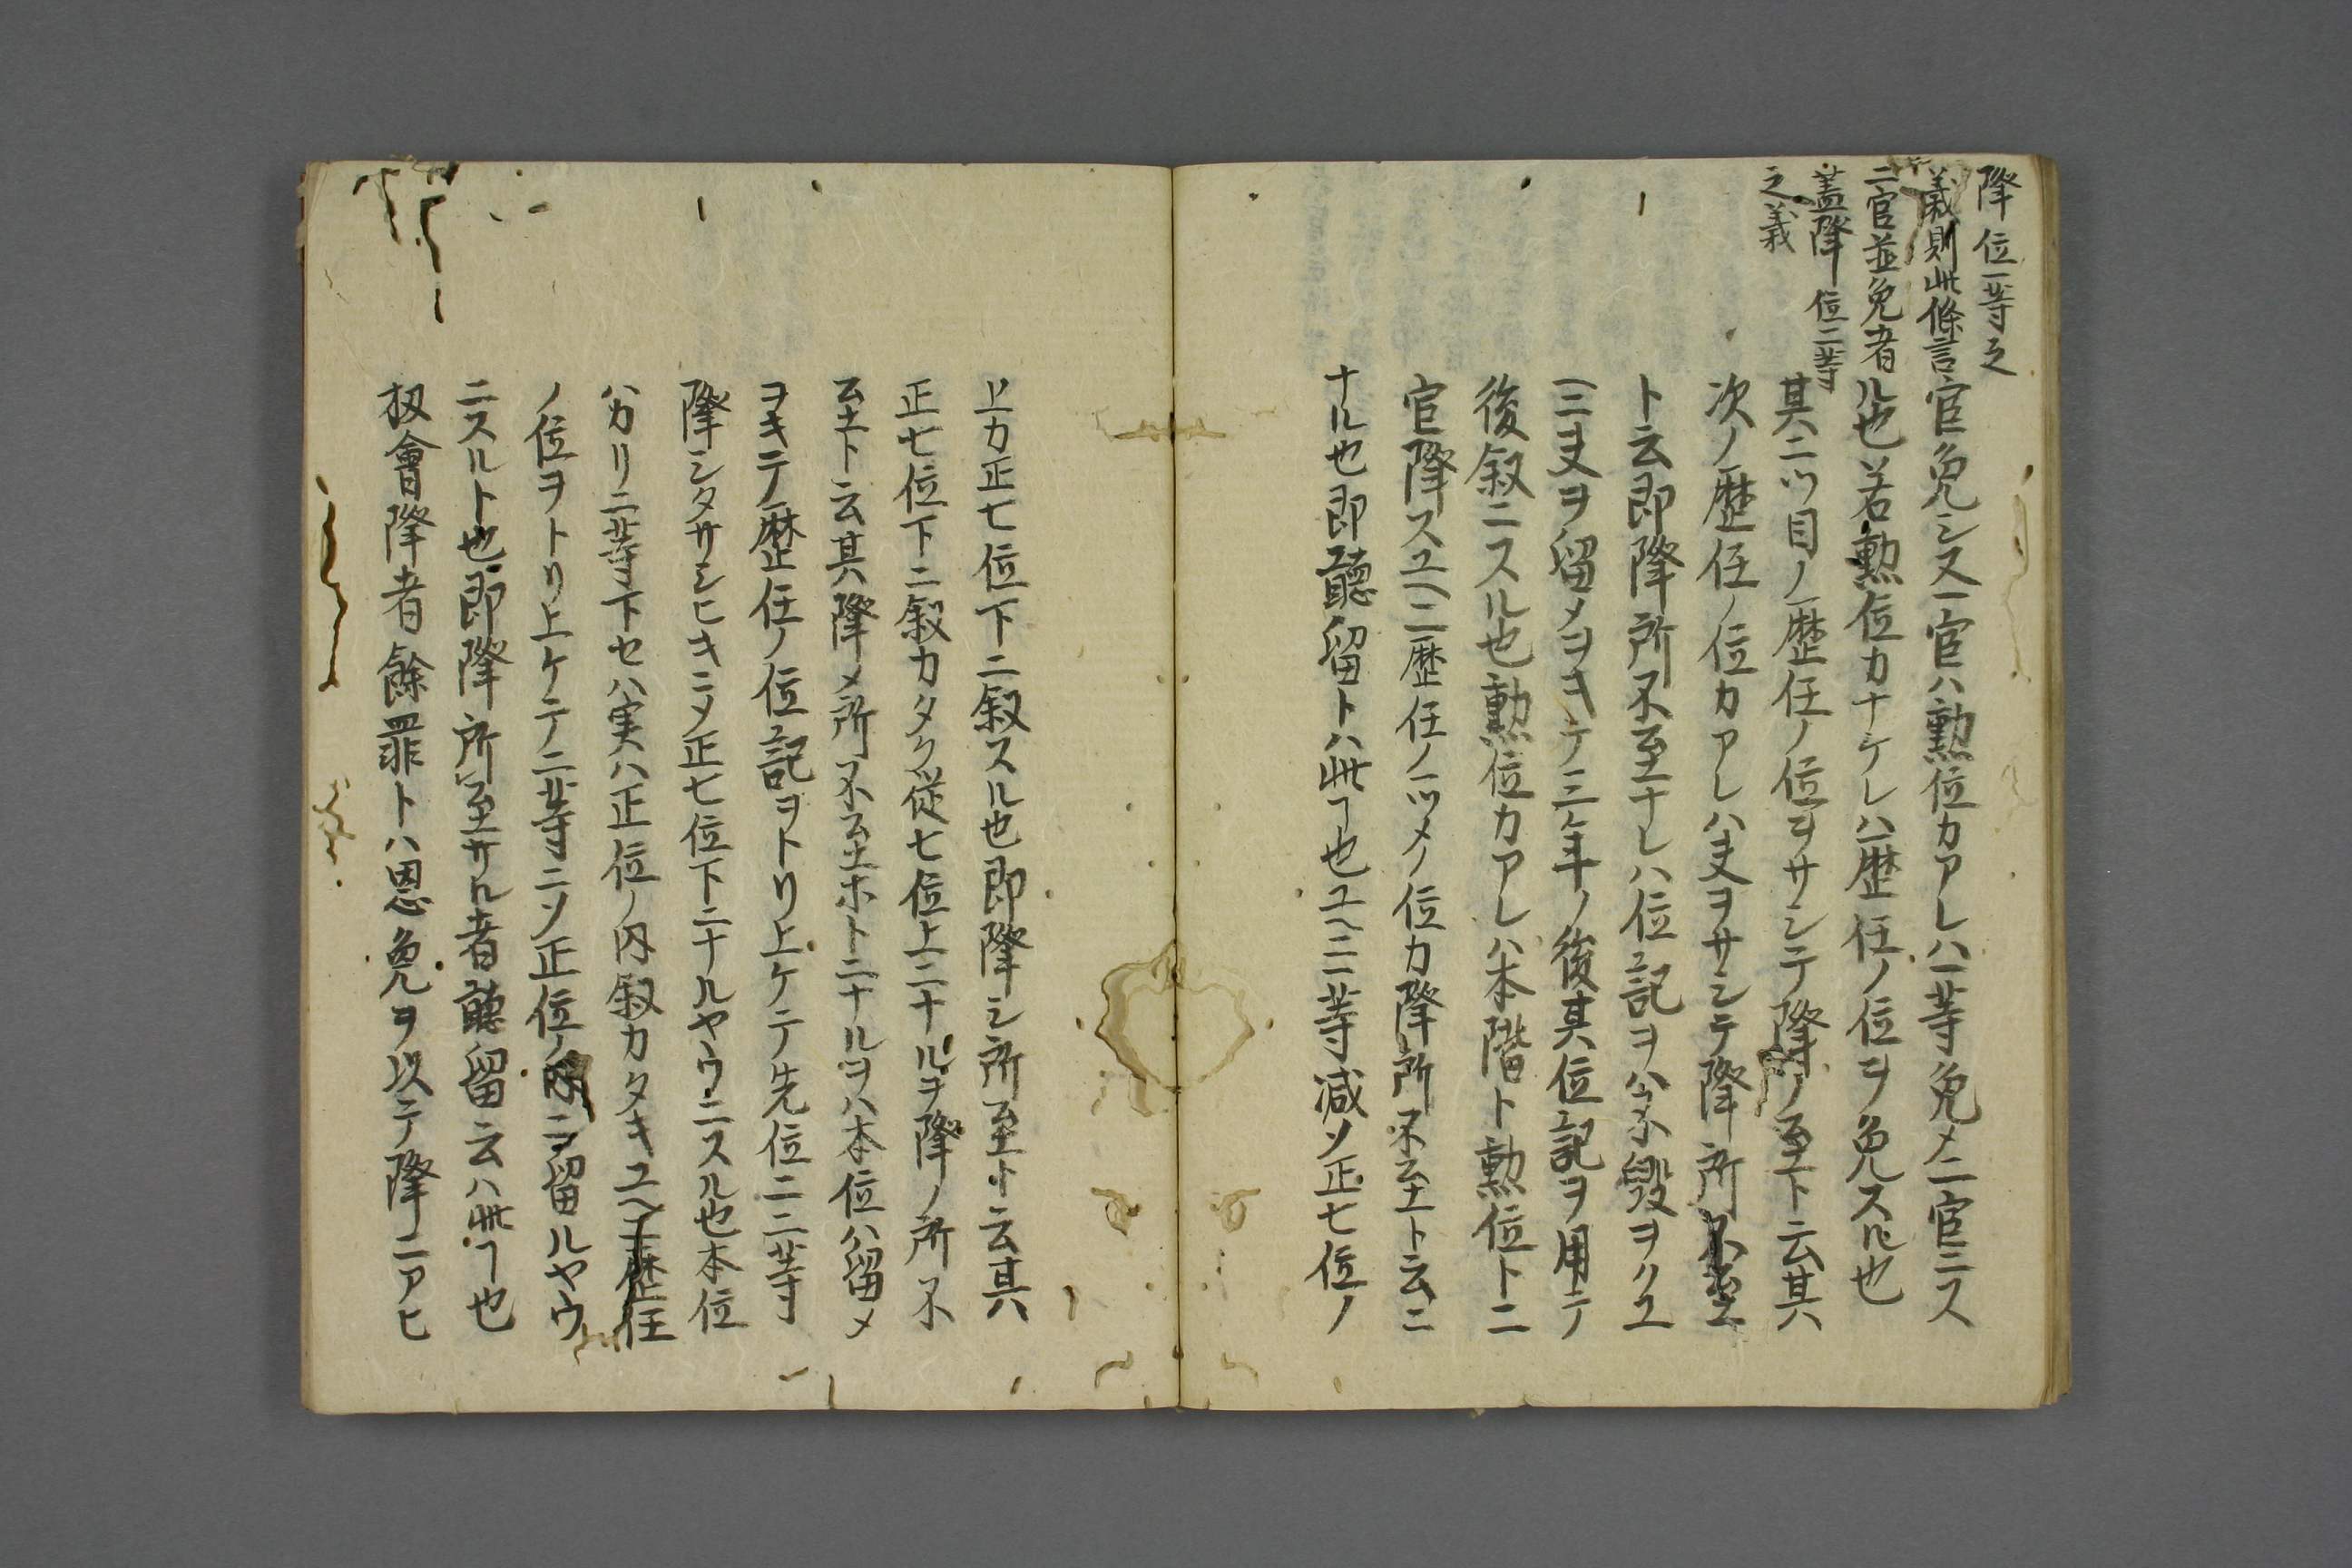 降位一等之
義則此條言
二官並免者
蓋降位二等
之義
官免シ又一官ハ勲位カアレハ一等免メ二官ニス
ル也若勲位カナケレハ一歴任ノ位ヲ免スル也
其二ツ目ノ歴任ノ位ヲサシテ降ノ至ト云其
次ノ歴任ノ位カアレハ夫ヲサシテ降所不至
ト云即降所不至ナレハ位記ヲハ不毀ヲクユ
ヘニ夫ヲ留メヲキテ三年ノ後其位記ヲ用テ
後叙ニスル也勲位カアレハ本階ト勲位ト二
官降スユヘ二歴任ノ一ツメノ位カ降所不至ト云ニ
ナル也即聽留トハ此ヿ也ユヘニ二等減ソ正七位ノ
上カ正七位下ニ叙スル也即降シ所至ト云其
正七位下ニ叙カタク従七位上ニナルヲ降ノ所不
至ト云其降メ所不至ホトニナルヲハ本位ハ留メ
ヲキテ一歴任ノ位記ヲトリ上ケテ先位ニ二等
降シタサシヒキニメ正七位下ニナルヤウニスル也本位
ハカリ二等下セハ実ハ正位ノ内叙カタキユヘ一歴任
ノ位ヲトリ上ケテ二等ニソ正位ノ ヲ留ルヤウ
ニスルト也即降所至サル者聽留云ハ此ヿ也
扨會降者餘罪トハ恩免ヲ以テ降ニアヒ